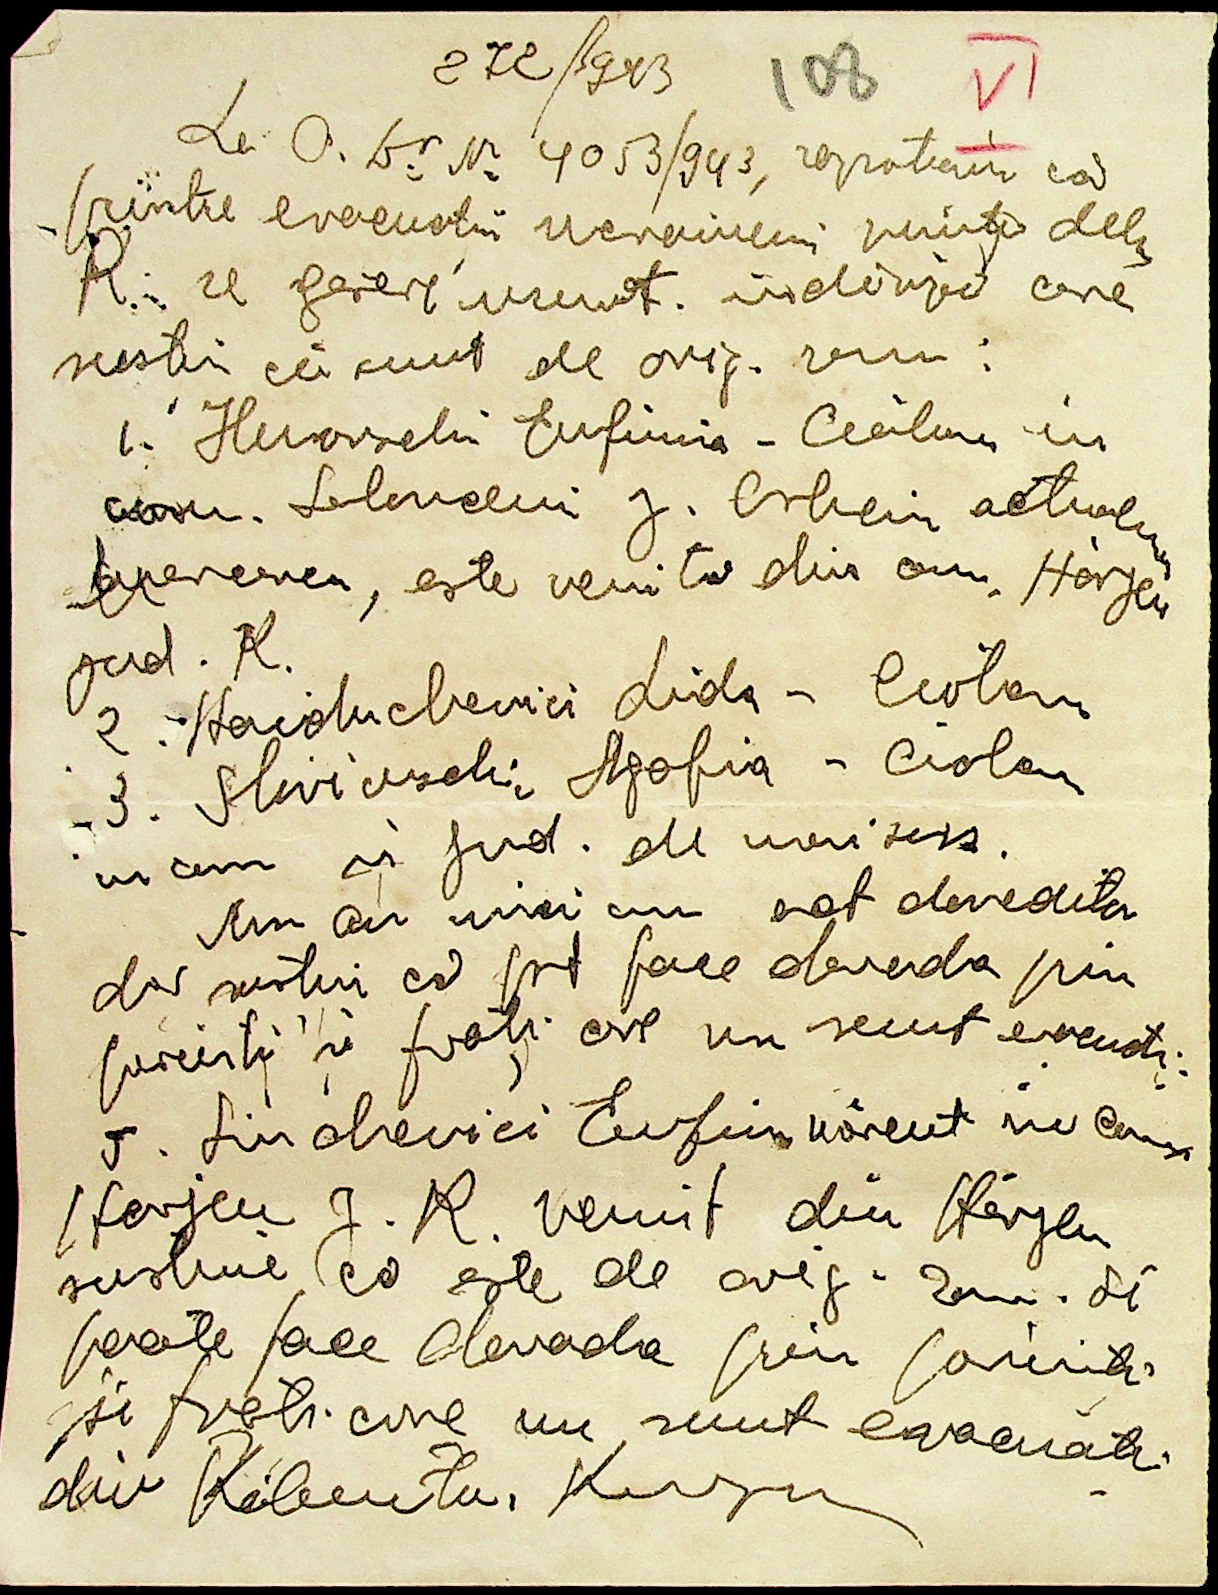 272/943 108 VI
La O. Dv. Nr. 4053/943, raportăm că
printre evacuații ucraineni primiți dela
R. se găsesc urmat. indivizi care
susțin că sunt de orig. rom:
1. Eufimia - Ciolan in
com. j. actualm
, este venita din com. Hârjeu
jud. R.
2. Haiduchevici Lida - Ciolan
3. Slivinschi Agafia - Ciolan
in com și jud. de mai sus.
Nu au nici un act doveditor
dar susțin că pot face dovada prin
părinți și frați care nu sunt evacuați.
5. Linchevici Eufim născut în com
Harjeu J. R. venit din Hârjeu
susține că este de orig. rom. și
poate face dovada prin părinți
și frați care nu sunt evacuați
din Râbnița.